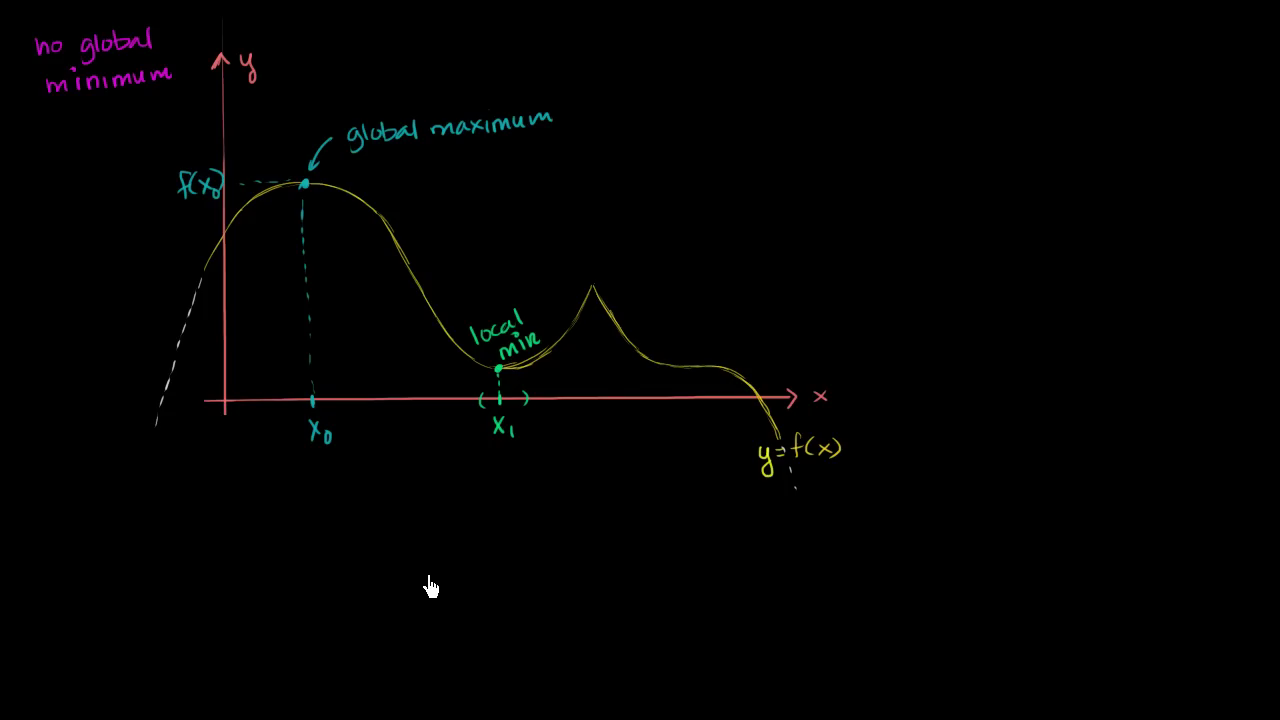 no global
minimum
y
global maximum
f(x₀)
local
min
( )
x
x₀
x₁
y=f(x)